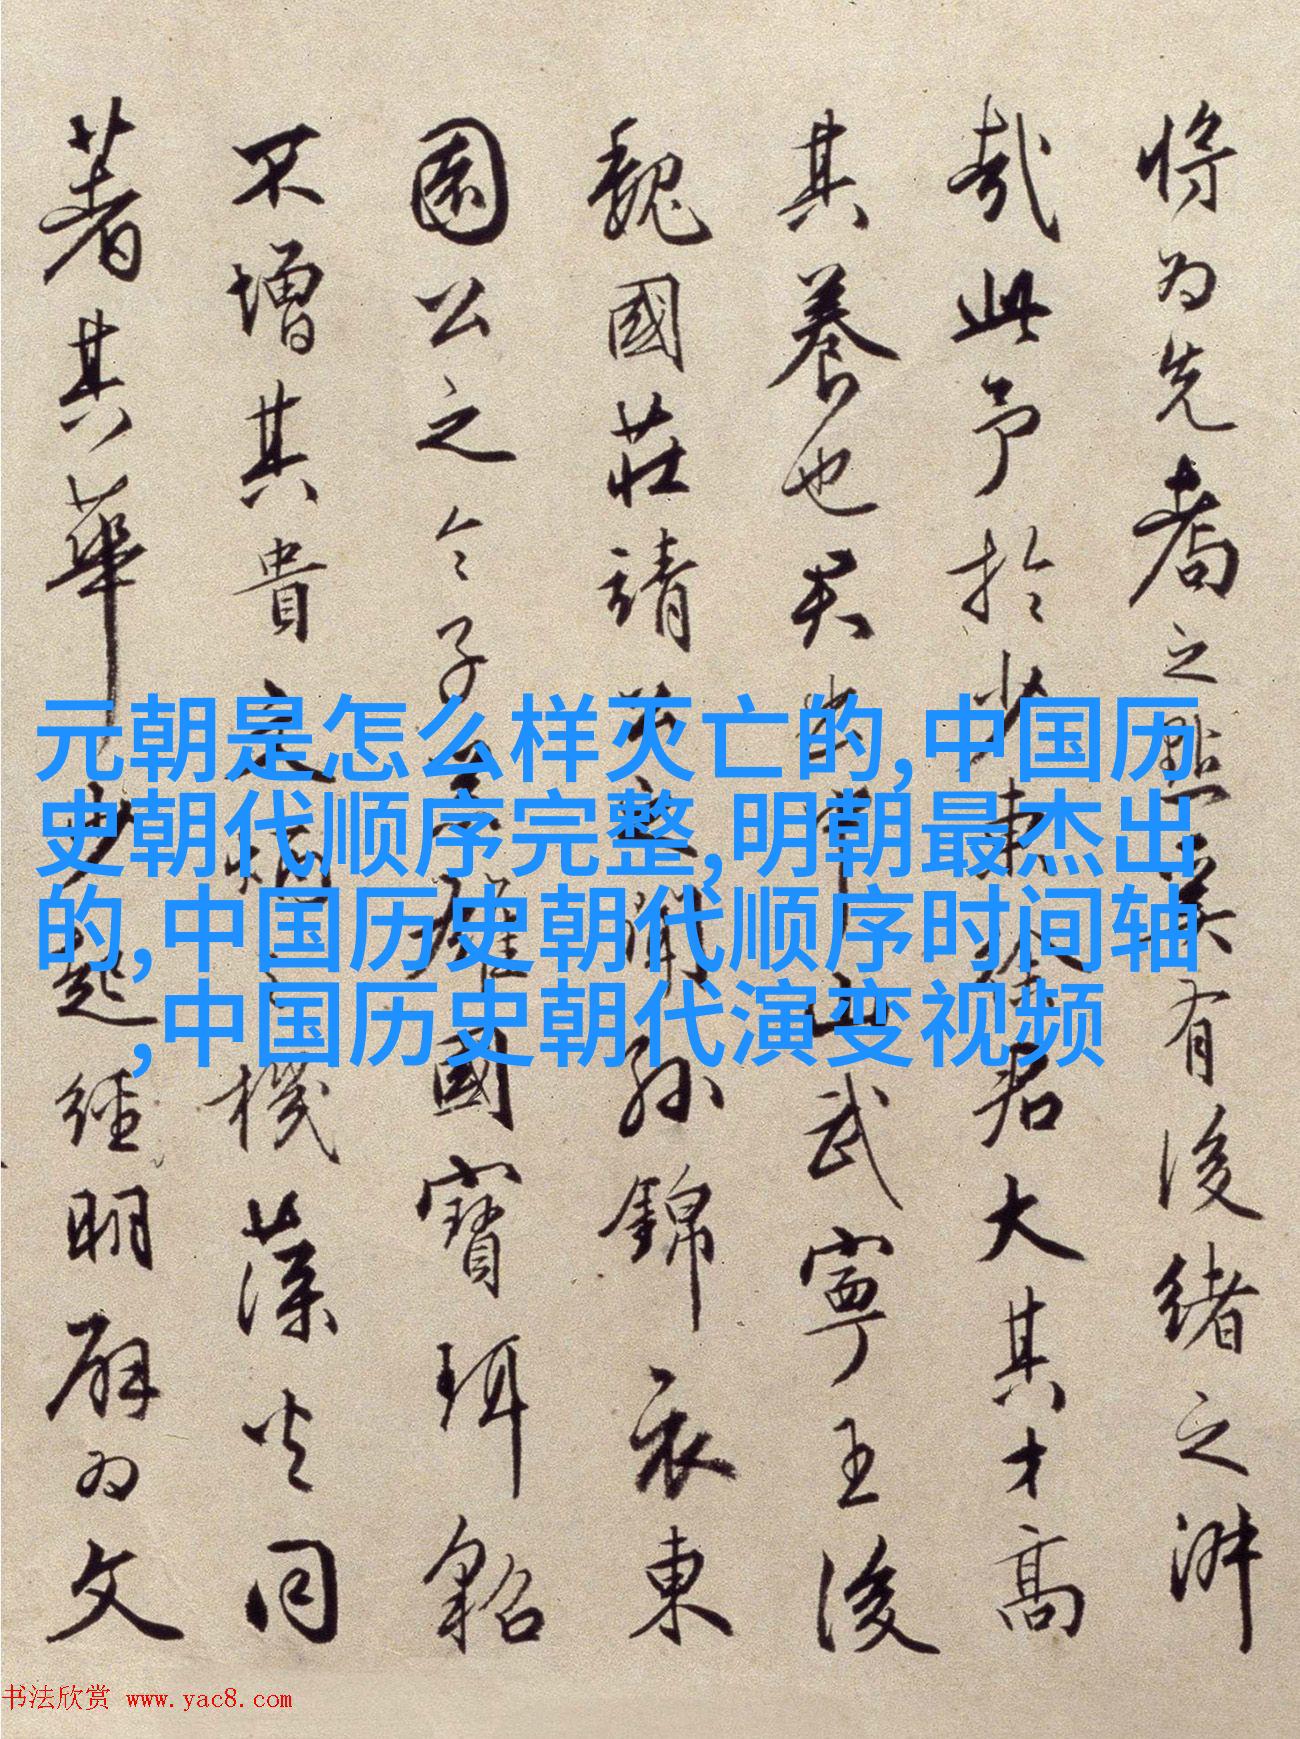 将为先者之點英有後緒之
哉此予於少東徐君大其才高
其養也君出中山武寧王後
魏國莊請公之孫錦衣東
園公之令子
國寶珥貂
不增其貴
機藻火同
著其華
起經明辭为文
元朝是怎么样灭亡的,中国历
史朝代顺序完整,明朝最杰出
的,中国历史朝代顺序时间轴
,中国历史朝代演变视频
书法欣赏 www.yac8.com